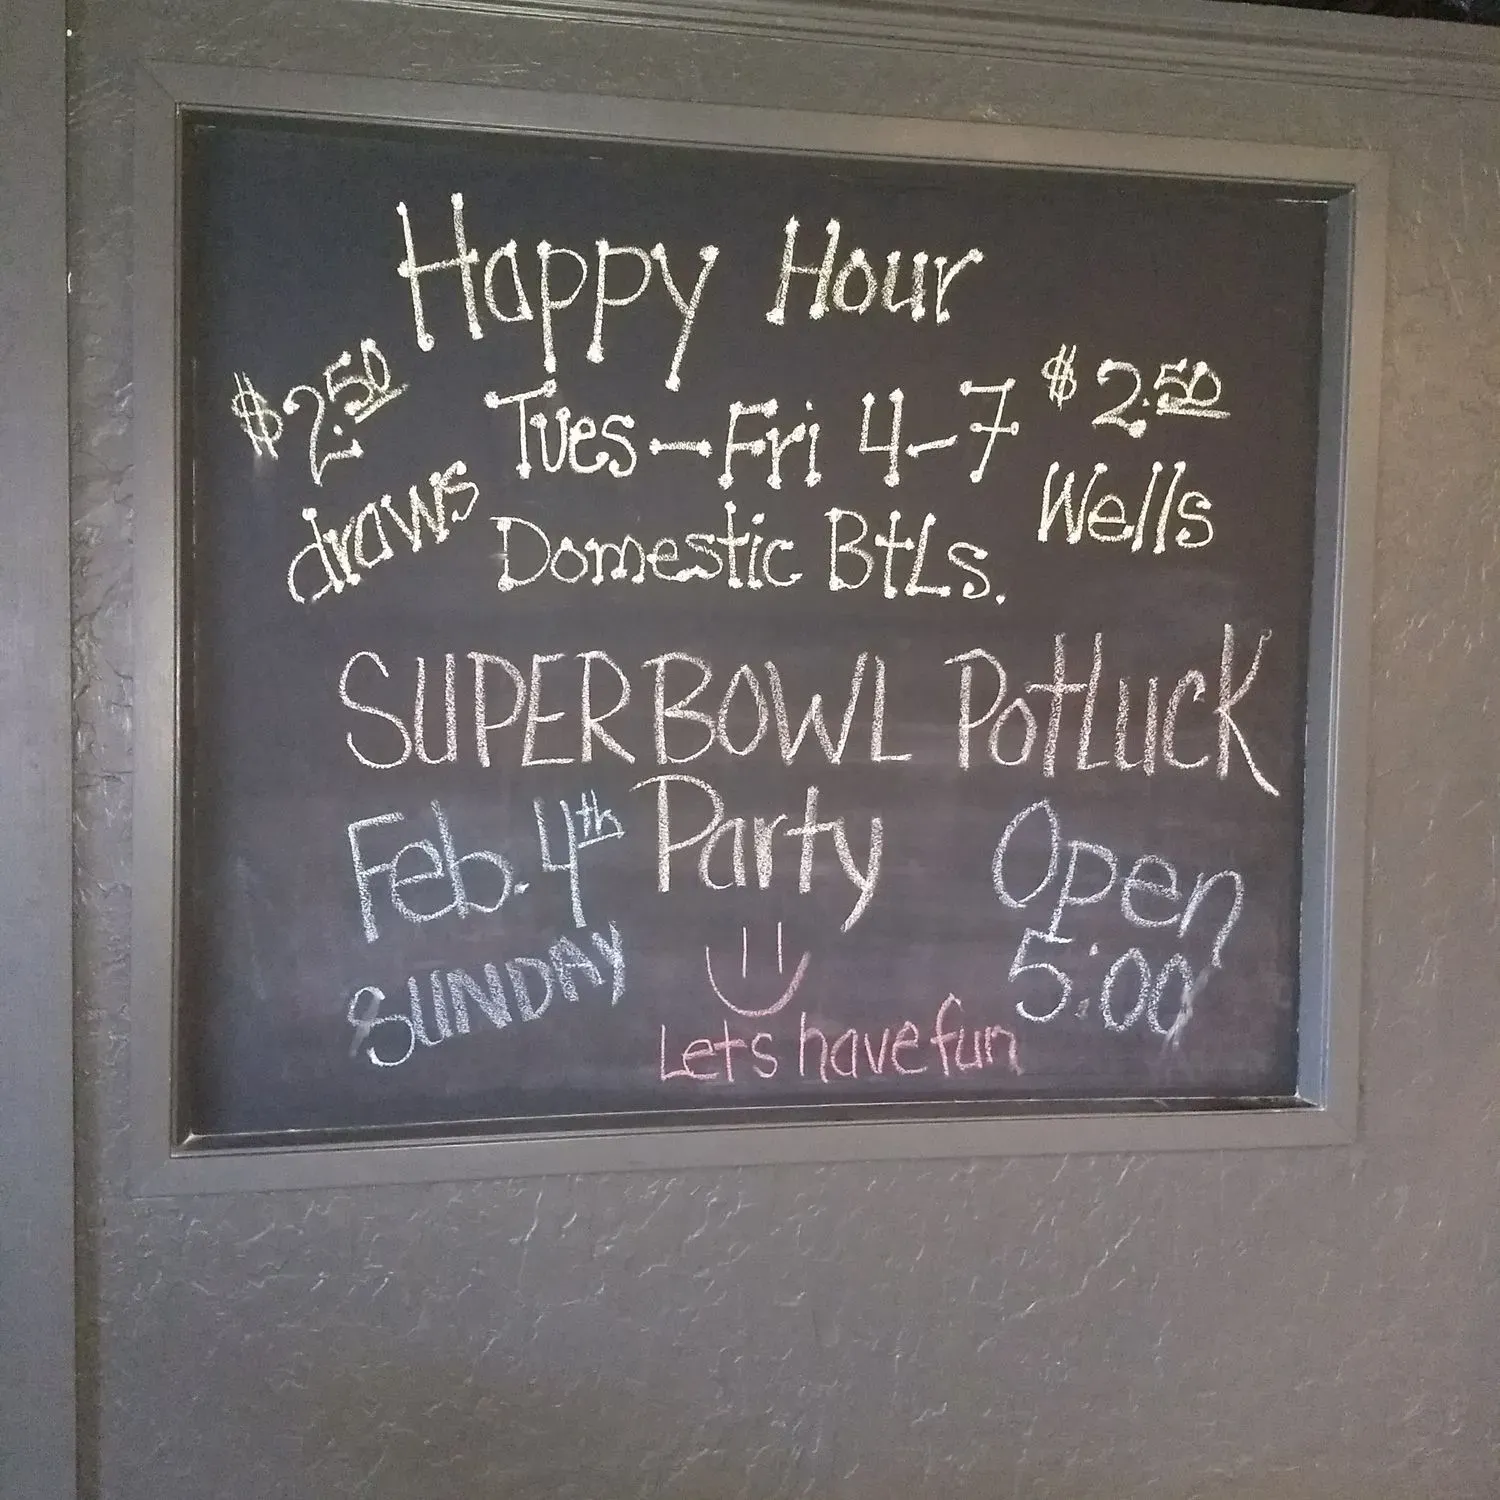 Happy Hour
$2.50 draws
Tues-Fri 4-7
Domestic BtLs.
$2.50 Wells
SUPERBOWL PotLUCK
Party
Feb. 4th
SUNDAY
Open
5:00
Lets have fun